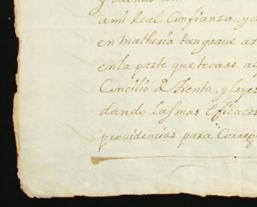 ami Real Confianza, y
en matheria tan grave
en la parte que tocare a
Concilio de Trento, y leyes
dando las mas eficaces
providencias para